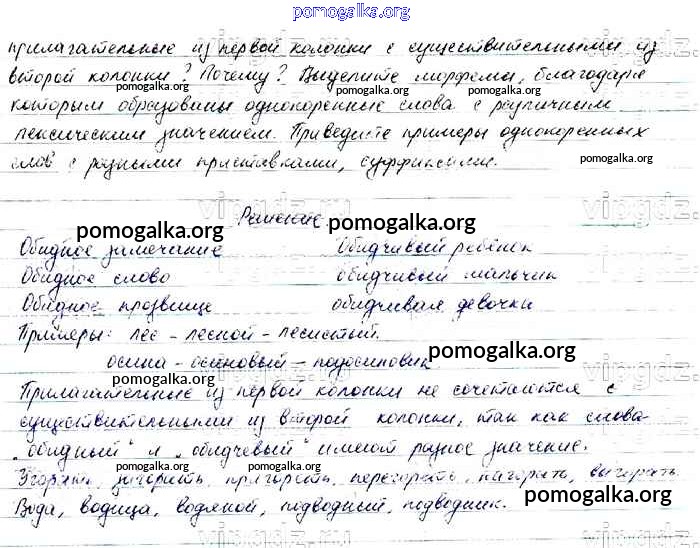 pomogalka.org
прилагательные из первой колонки с существительными из
второй колонки? Почему? Выделите морфемы, благодаря
которым образованы однокоренные слова с различным
лексическим значением. Приведите примеры однокоренных
слов с разными приставками, суффиксами.
Решение
Обидное замечание обидчивый ребёнок
Обидное слово обидчивый мальчик
Обидное прозвище обидчивая девочка
Примеры: лес - лесной - лесистый.
осина - осиновый - подосиновик.
Прилагательные из первой колонки не сочетаются с
существительными из второй колонки, так как слова
"обидный" и "обидчевый" имеют разное значение.
Угорать, загорать, пригорать, перегорать, нагорать, выгорать.
Вода, водица, водяной, подводный, подводник.